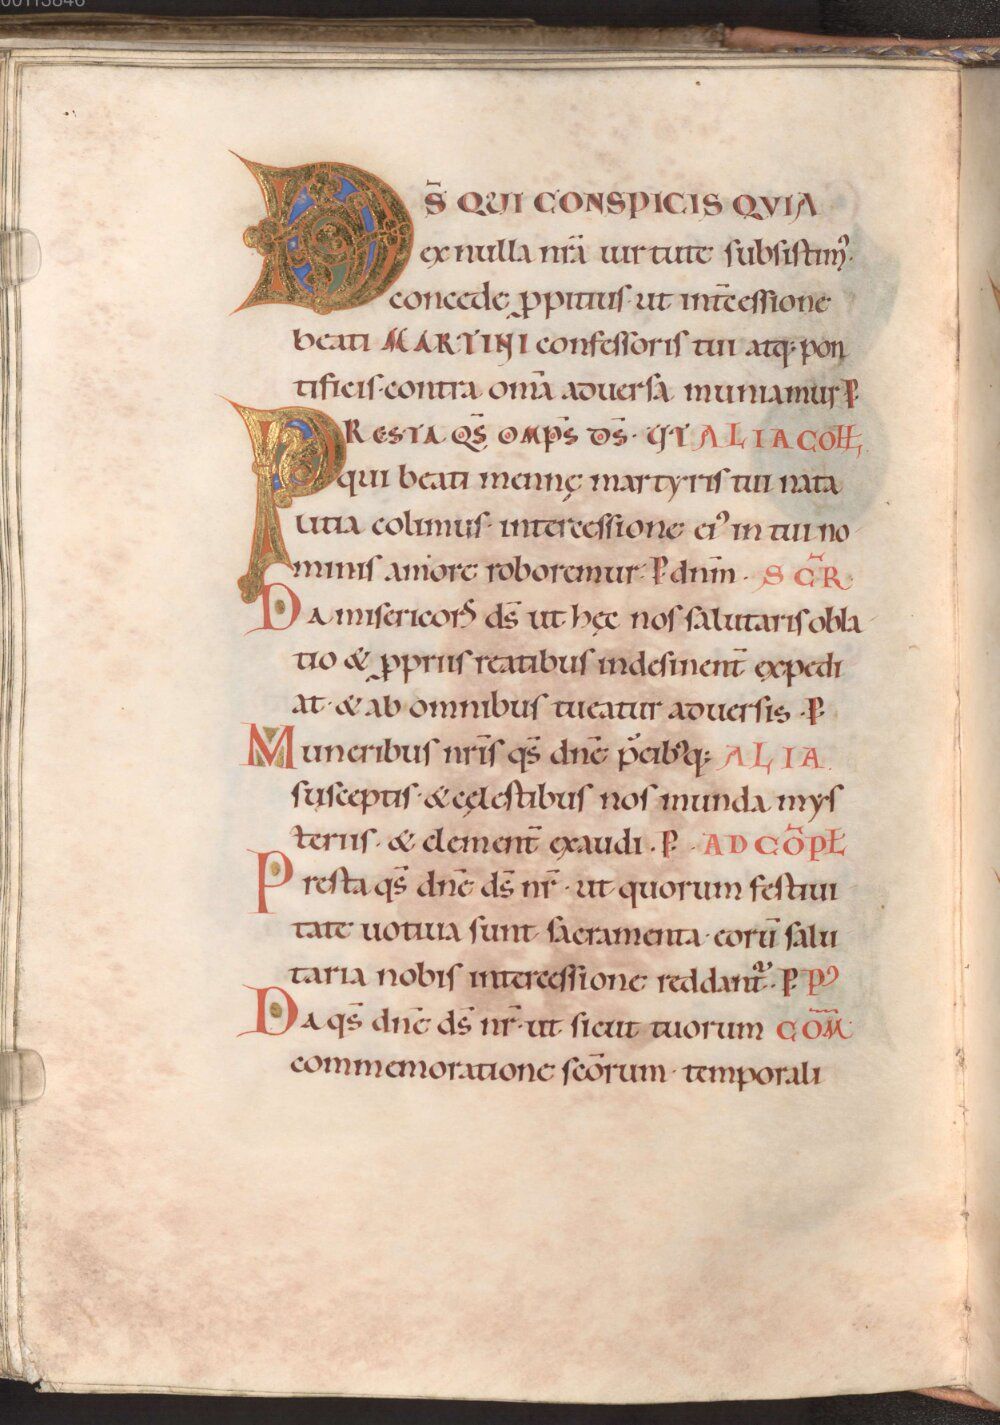 DS̄ QUI CONSPICIS QVIA
ex nulla nr̄a uirtute subsistim᷒·
concede ꝓpitius· ut int̄cessione
beati MARTINI confessoris tui atq; pon
tificis· contra om̄a aduersa muniamur P
PRESTA QS̄ OMPS̄ DS̄· QI ALIA COLL
qui beati mennę martyris tui nata
litia colimus· intercessione ei᷒ in tui no
minis amore roboremur· P dnm̄· SECR̄
Da misericors ds̄ ut hęc nos salutaris obla
tio & ꝓpriis reatibus indesinent̄ expedi
at· & ab omnibus tueatur aduersis· P
Muneribus nr̄is qs̄ dn̄e p̄cib᷒q; ALIA
susceptis· & cęlestibus nos munda mys
teriis· & clement̄ exaudi· P AD CŌPL
Presta qs̄ dn̄e ds̄ nr̄· ut quorum festiui
tate uotiua sunt sacramenta eorū salu
taria nobis intercessione reddant᷑· P P᷒
Da qs̄ dn̄e ds̄ nr̄· ut sicut tuorum COM̄
commemoratione scōrum· temporali